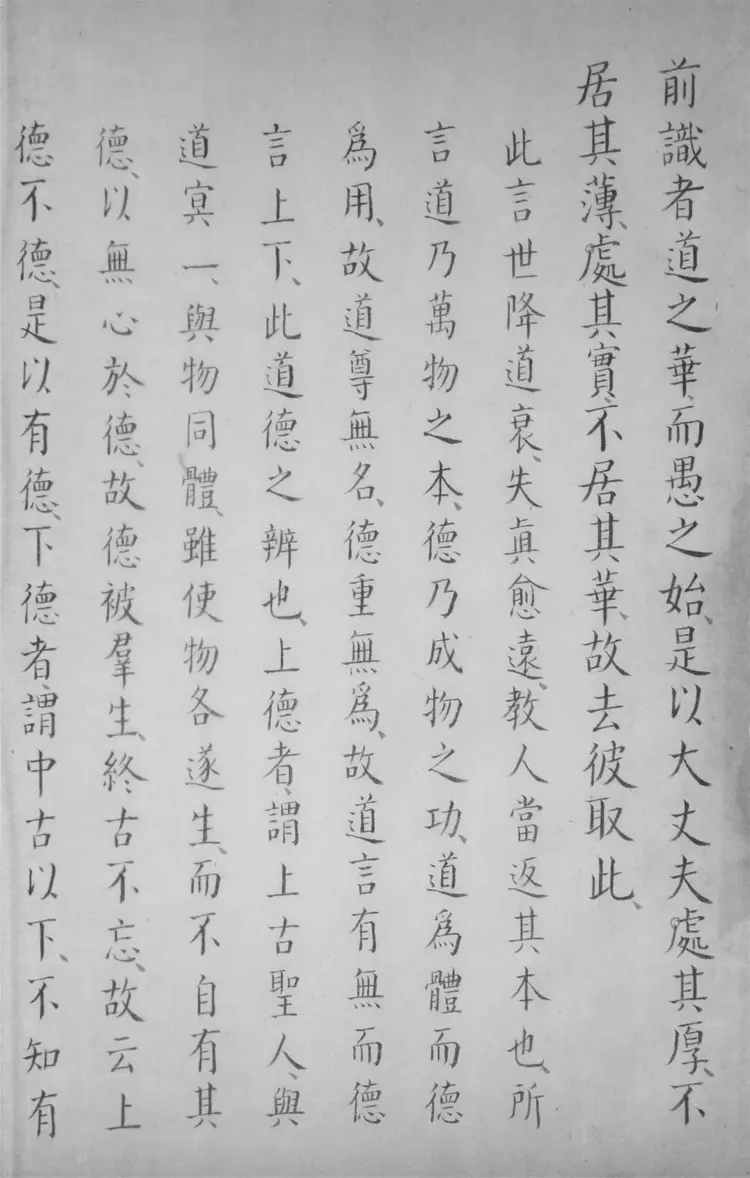 前識者道之華、而愚之始、是以大丈夫處其厚、不
居其薄、處其實、不居其華、故去彼取此、
此言世降道衰、失眞愈遠、教人當返其本也、所
言道乃萬物之本、德乃成物之功、道爲體而德
爲用、故道尊無名、德重無爲、故道言有無而德
言上下、此道德之辨也、上德者、謂上古聖人、與
道冥一、與物同體、雖使物各遂生、而不自有其
德、以無心於德、故德被羣生、終古不忘、故云上
德不德、是以有德、下德者、謂中古以下、不知有